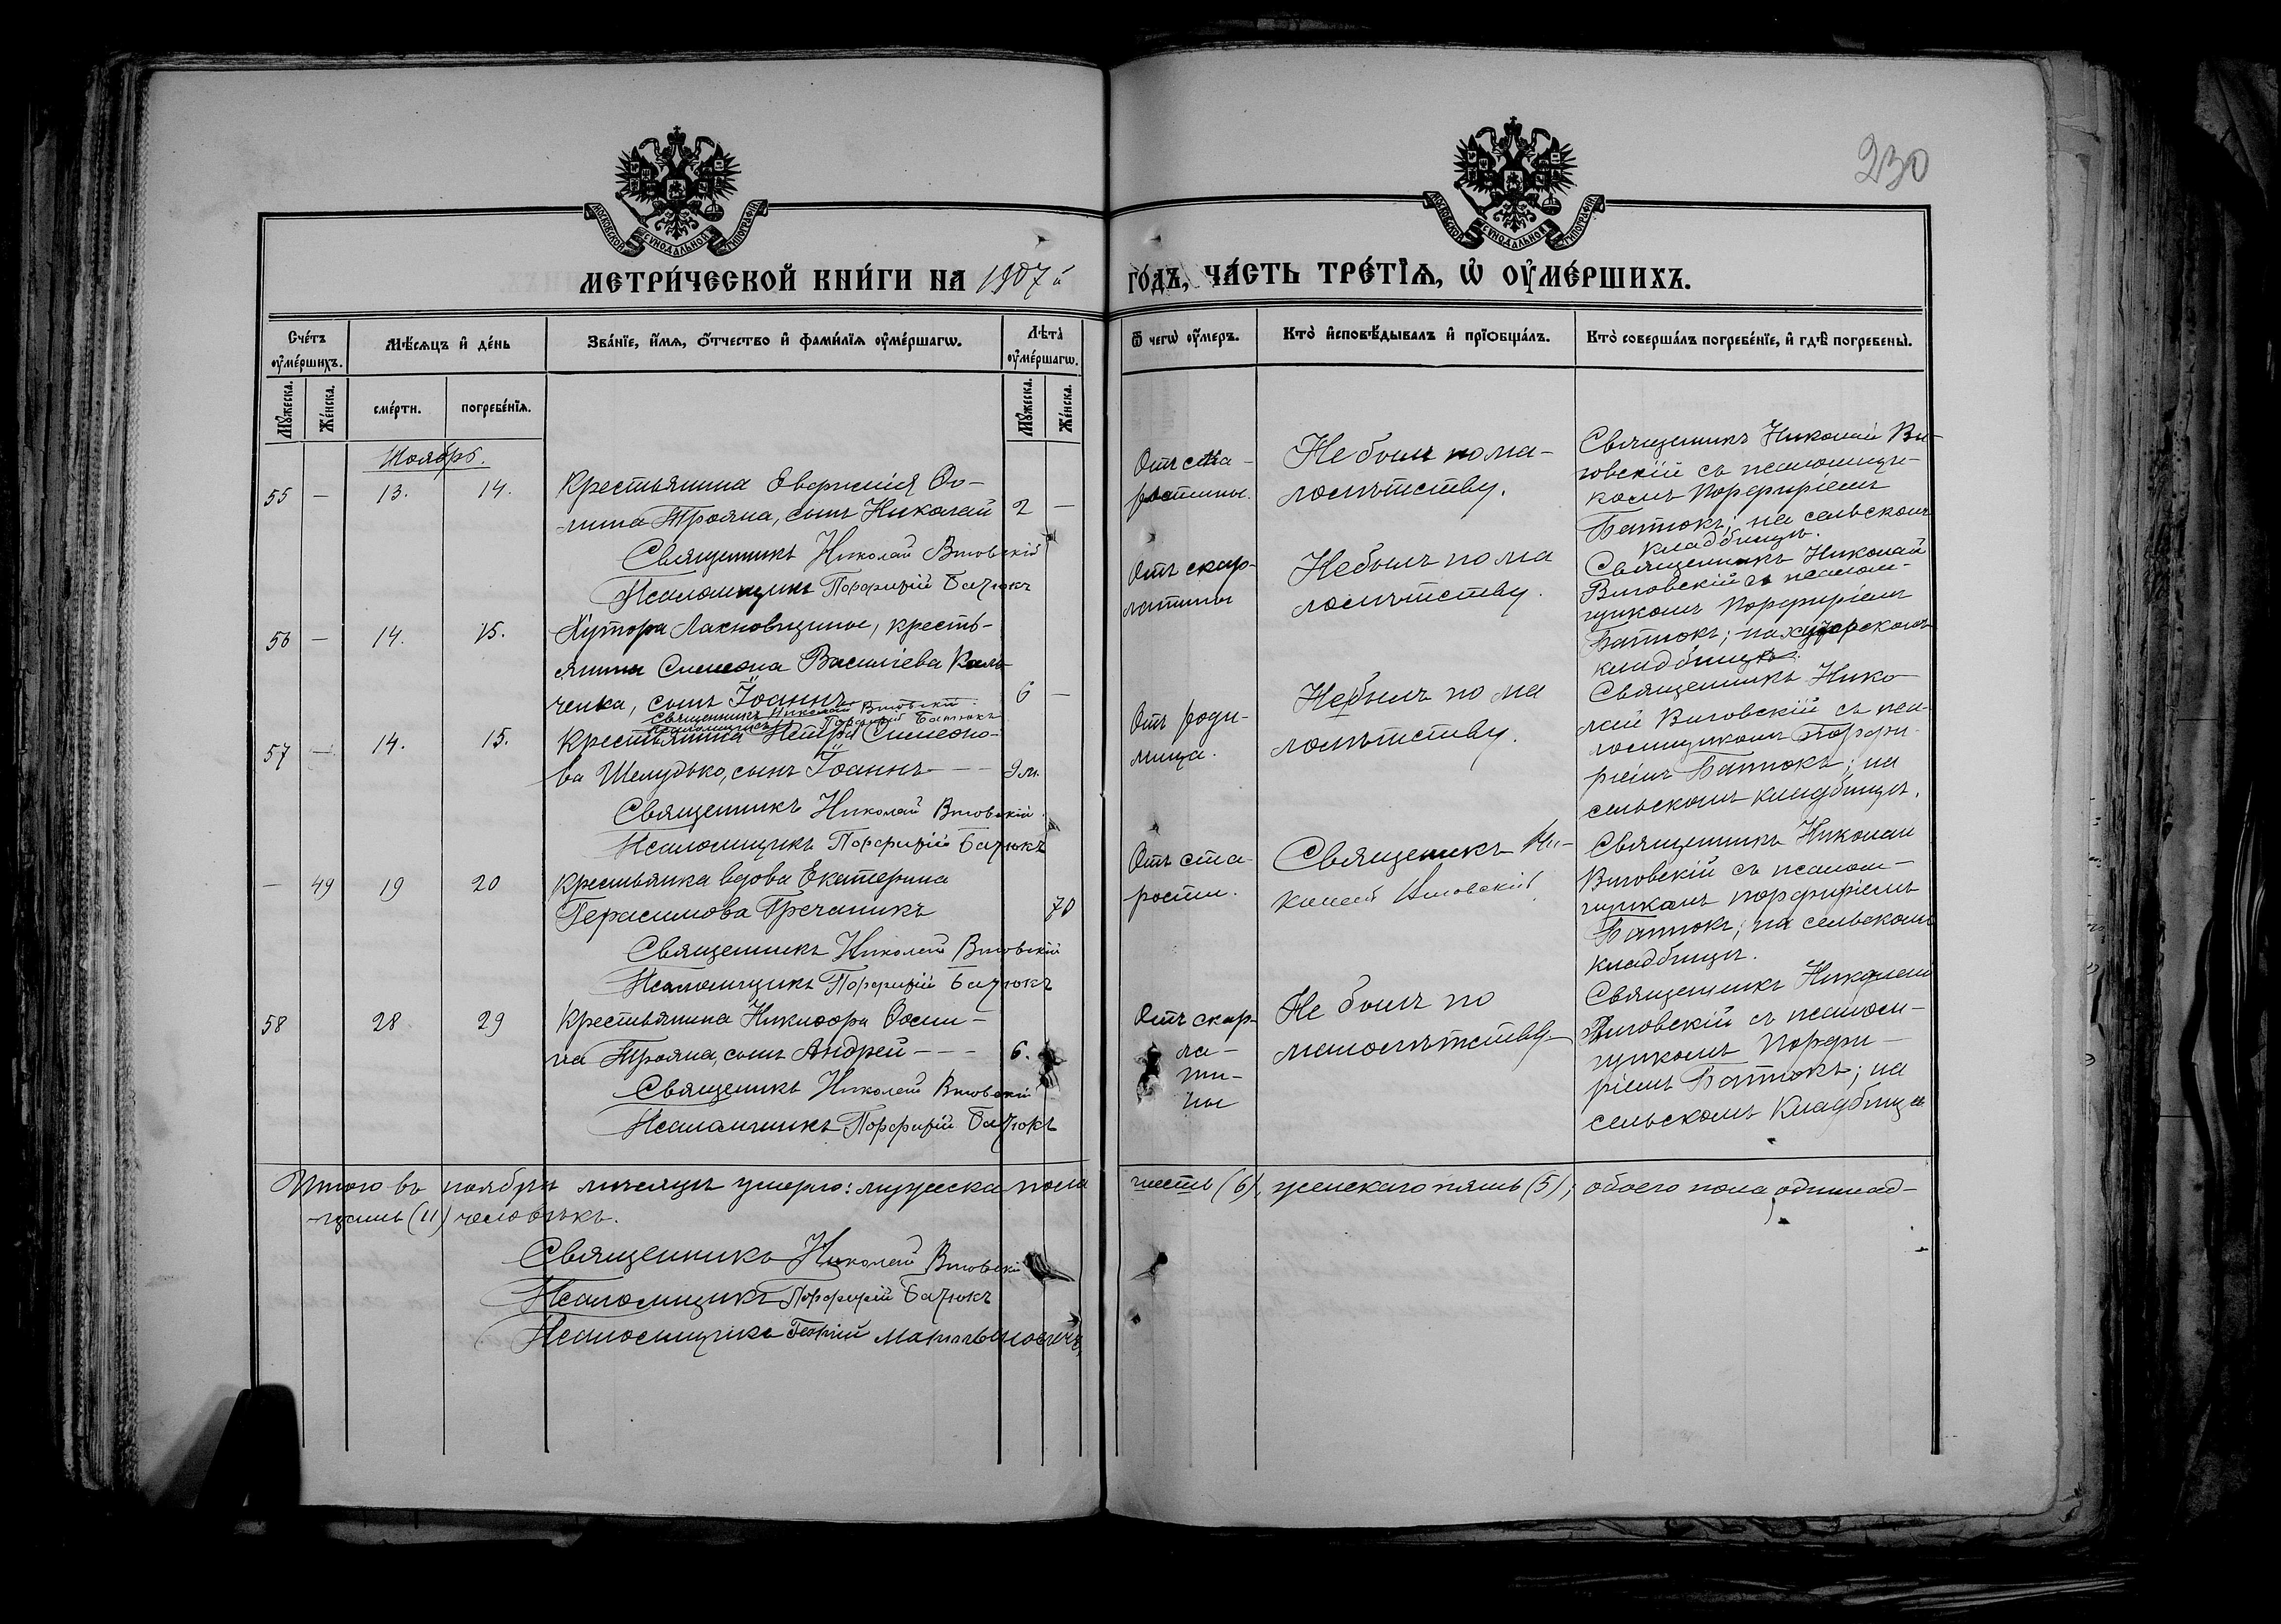 230
МОСКОВСКОЙ СУНОДАЛЬНОЙ ТИПОГРАФІИ
МОСКОВСКОЙ СУНОДАЛЬНОЙ ТИПОГРАФІИ
МЕТРИ́ЧЕСКОЙ КНИ́ГИ НА 1907й ГО́ДЪ, ЧА́СТЬ ТРЕ́ТІѦ, Ѡ҆ ОУ҆МЕ́РШИХЪ.
Сче́тъ оу҆ме́ршихъ.
Мѣ́сѧцъ и҆ де́нь
Зва́нїе, и҆́мѧ, ѻ҆́тчество и҆ фами́лїѧ оу҆ме́ршагѡ.
Лѣ́та оу҆ме́ршагѡ.
Ѿ чегѡ̀ оу҆́меръ.
Кто̀ и҆сповѣ́дывалъ и҆ прїѡбща́лъ.
Кто̀ соверша́лъ погребе́нїе, и҆ гдѣ̀ погребены̀.
Мꙋ́жеска.
Же́нска.
сме́рти.
погребе́нїѧ.
Мꙋ́жеска.
Же́нска.
Ноябрь.
55 — 13. 14.
Крестьянина
Трояна, сынъ Николай 2 —
Священникъ Николай Виговскій
Псаломщикъ Порфирій Батюкъ
Отъ скар-
латины.
Не былъ по ма-
лолѣтству.
Священникъ Николай Ви-
говскій съ псаломщи-
комъ Порфиріемъ
Батюкъ; на сельскомъ
кладбищѣ.
56 — 14. 15.
Хутора Лахновщины, кресть-
янина Симеона Василіева Каль-
ченка, сынъ Іоаннъ 6 —
Священникъ Николай Виговскій
Псаломщикъ Порфирій Батюкъ
Отъ скар-
латины
Не былъ по ма
лолѣтству.
Священникъ Николай
Виговскій съ псалом-
щикомъ Порфиріемъ
Батюкъ; на хуторскомъ
кладбищѣ.
57 — 14. 15.
Крестьянина Петра Симеоно-
ва Шелудько, сынъ Іоаннъ — — 9 м.
Священникъ Николай Виговскій
Псаломщикъ Порфирій Батюкъ
Отъ роди-
мица.
Не былъ по ма
лолѣтству.
Священникъ Нико
лай Виговскій съ пса-
ломщикомъ Порфи-
ріемъ Батюкъ; на
сельскомъ кладбищѣ.
— 49 19 20
Крестьянка вдова Екатерина
Герасимова Гречаникъ 70
Священникъ Николай Виговскій
Псаломщикъ Порфирій Батюкъ
Отъ ста-
рости.
Священникъ Ни-
колай Виговскій
Священникъ Николай
Виговскій съ псалом-
щикомъ Порфиріемъ
Батюкъ; на сельскомъ
кладбищѣ.
58 28 29
Крестьянина Никифора
Трояна, сынъ Андрей — — — 6.
Священникъ Николай Виговскій
Псаломщикъ Порфирій Батюкъ
Отъ скар-
ла-
ти-
ны
Не былъ по
малолѣтству.
Священникъ Николай
Виговскій съ псалом-
щикомъ Порфи-
ріемъ Батюкъ; на
сельскомъ кладбищѣ
Итого въ ноябрѣ мѣсяцѣ умерло: мужеска пола шесть (6), женскаго пять (5); обоего пола одиннад-
цать (11) человѣкъ.
Священникъ Николай Виговскій
Псаломщикъ Порфирій Батюкъ
Псаломщикъ Георгій